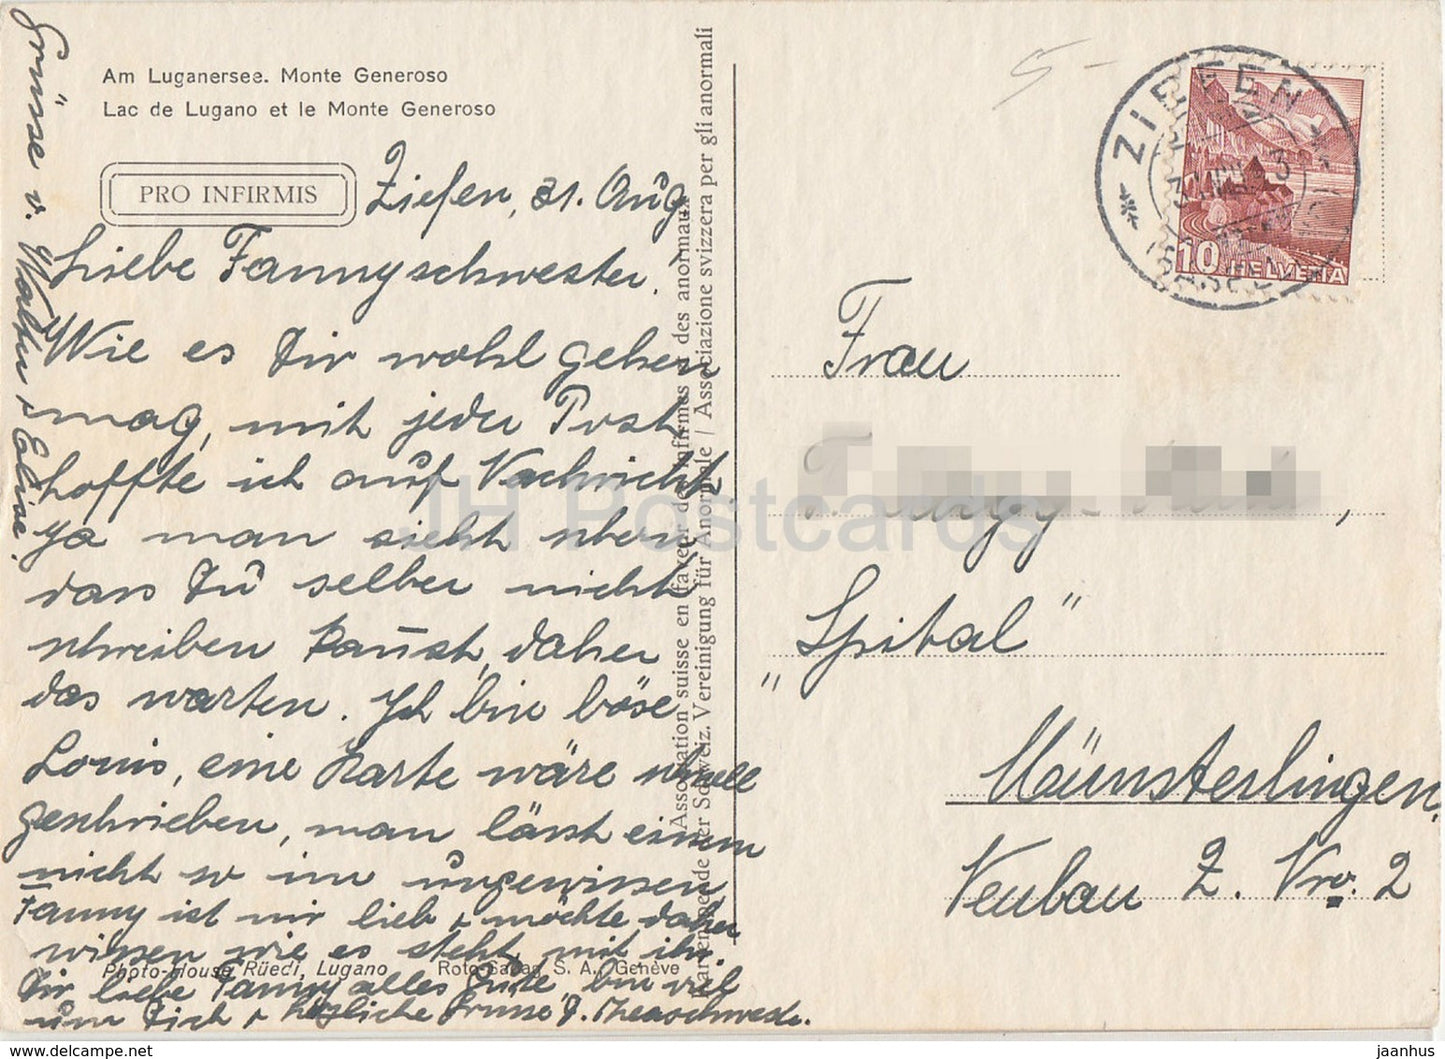 Am Luganersee. Monte Generoso
Lac de Lugano et le Monte Generoso
PRO INFIRMIS
Ziefen, 31. Aug.
Liebe Fannyschwester.
Wie es Dir wohl gehen
mag, mit jeder Post
hoffte ich auf Nachricht
ja man sieht eben
dass Du selber nicht
schreiben kannst, daher
das warten. Ich bin böse
Louis, eine Karte wäre schnell
geschrieben, man lässt einem
nicht so im ungewissen
Fanny ist mir lieb & möchte daher
wissen wie es steht mit ihr.
Dir liebe Fanny alles Gute, bin viel
um Dich & herzliche Grüsse
Grüsse v. Walter & Elise.
Photo-House Rüedi, Lugano
Roto-Sadag S. A., Genève
Association suisse en faveur des infirmes et des anormaux
Kartenspende der Schweiz. Vereinigung für Anormale / Associazione svizzera per gli anormali
5 -
ZIEFEN
10 HELVETIA
Frau
"Spital"
Münsterlingen.
Neubau Z. Nro. 2
JH Postcards
www.delcampe.net
jaanhuus